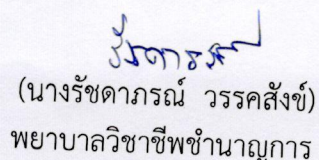 (นางรัชดาภรณ์ วรรคสังข์)
พยาบาลวิชาชีพชำนาญการ